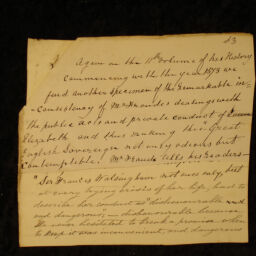 43
Again in the 11th Volume of his History
commencing with the year 1573 we
find another specimen of the remarkable in-
-consistency of Mr Froude's dealings with
the public acts and private conduct of Queen
Elizabeth and thus making this great
English Sovereign not only odious but
contemptible. Mr Froude tells his readers—
"Sir Francis Walsingham not once only, but
at every trying crisis of her life, had to
describe her conduct as dishonourable and
and dangerous; – dishonourable because
She never hesitated to break a promise when
to keep it was inconvenient, and dangerous